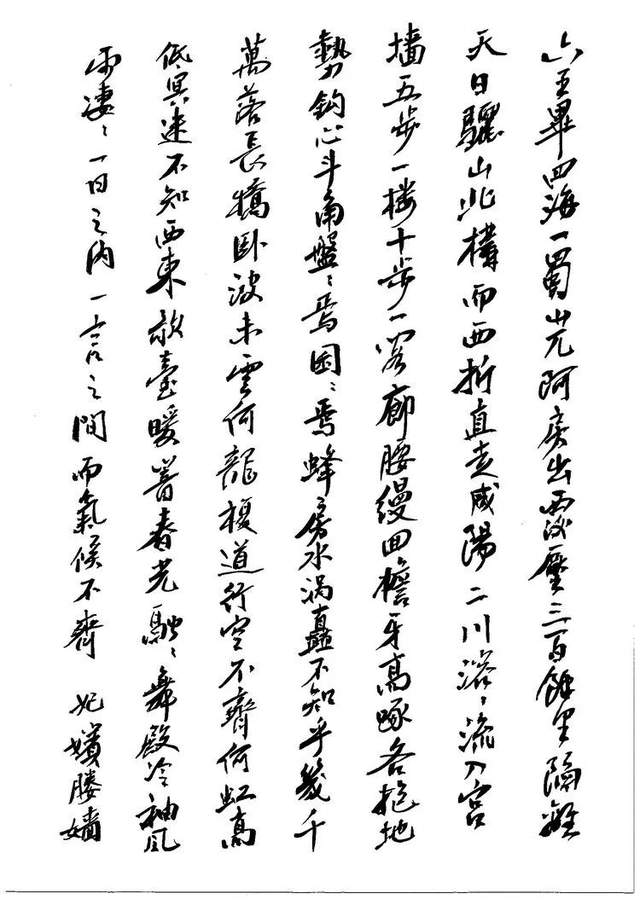 六王畢四海一蜀山兀阿房出覆壓三百餘里隔離
天日驪山北構而西折直走咸陽二川溶〻流入宮
墙五步一楼十步一閣廊腰缦回檐牙高啄各抱地
勢鈎心斗角盤〻焉囷〻焉蜂房水涡矗不知乎幾千
萬落長橋卧波未雲何龍複道行空不齊何虹高
低冥迷不知西東歌臺暖響春光融〻舞殿冷袖風
雨凄〻一日之內一宮之間而氣候不齊 妃嬪媵嬙